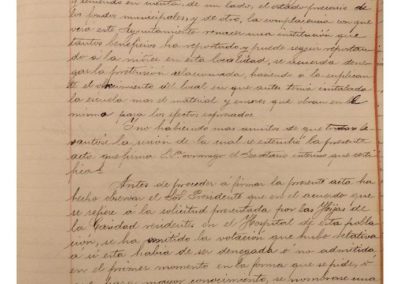 y teniendo en cuenta de un lado, el estado precario de
los fondos municipales y de otro, la complacencia con que
vería este Ayuntamiento renacer una institución que
tantos beneficios ha reportado y puede seguir reportan-
do á la niñez en esta localidad, se acuerda dene-
gar la pretensión relacionada, haciendo á la suplican-
te el ofrecimiento del local en que antes tenía instalada
la escuela mas el material y enseres que obran en la
misma para los efectos expresados
Y no habiendo mas asuntos de que tratar se
levantó la sesión de la cual se extendió la presente
acta que firma el Domingo el Secretario interino que certi-
fica.
Antes de proceder á firmar la presente acta ha
hecho observar el Sor. Presidente que en el acuerdo que
se refiere á la solicitud presentada por las Hijas de
la Caridad residentes en el Hospital de esta pobla-
ción, se ha omitido la votación que hubo relativa
á si esta había de ser denegada ó no admitida
en el primer momento en la forma que se pide, ó
para mayor conocimiento, se nombrase una